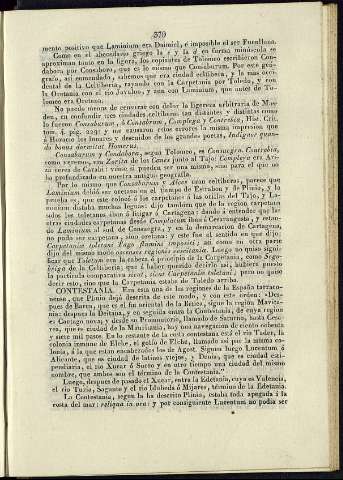 379
mento positivo que Laminium era Daimiel, e imposible el ser Fuenllana.
Como en el abecedario griego la s y la d en forma minúscula se
aproximan tanto en la figura, los copiantes de Tolomeo escribieron Con-
dabora por Consabora, que es lo mismo que Consaburum. Por este gra-
fado, así enmendado, sabemos que era ciudad celtíbera, y la mas occi-
dental de la Celtiberia, rayando con la Carpetania por Toledo, y con
la Oretania con el rio Javalon, y aun con Laminium, que antes de To-
lomeo era Oretana.
No puede menos de enervar con dolor la ligereza arbitraria de Mas-
deu, en confundir tres ciudades celtíberas tan distantes y distintas como
lo fueron Consaburum, ó Consabrum, Complega y Contrebia, Hist. Crit.
tom. 4. pág. 225; y no causaron estos errores la misma impresion que
á Horacio los lunares y descuidos de los grandes poetas, Indignor quan-
do bonus dormitat Homerus.
Consaburum y Condabora, segun Tolomeo, es Consuegra. Contrebia,
como veremos, era Zurita de los Canes junto al Tajo: Complega era Ari-
za cerca de Calatayud: vease si pueden ser una misma, sea para el que no
ha profundizado en nuestra antigua geografía.
Por lo mismo que Consaburum y Alces eran celtíberas, parece que
Laminium debió ser oretano en el tiempo de Estrabon y de Plinio, y la
prueba es, que este colocó los carpetanos á las orillas del Tajo, y La-
minium distaba muchas leguas: dijo tambien que de la region carpetana
salían los toletanos iban á litigar á Cartagena: dando á entender que las
otras ciudades carpetanas desde Complutum iban á Cesaraugusta, y estan-
do Laminium al sud de Consuegra, y en la demarcacion de Cartagena,
no podia ser carpetana, sino oretana: y este fue el motivo porque dijo:
Carpetaniæ toletani Tago flumini impositi; así como en otra parte
dijo del mismo modo mentesani regionis oretanæ. Luego no quiso signi-
ficar que Toletum era la cabeza ó principio de la Carpetania, como Sego-
briga de la Celtiberia; que á haber querido decirlo así, hubiera puesto
la partícula comparativa sicut, sicut Carpetaniæ toletani; pero no quiso
decir esto, sino que la Carpetania estaba de Toledo arriba.
CONTESTANIA. Era esta una de las regiones de la España tarraco-
nense, que Plinio dejó descrita de este modo, y con este órden: «Des-
pues de Barea, que es el fin oriental de la Bética, sigue la region Mavita-
nia: despues la Deitana, y en seguida entra la Contestania, de cuya region
es Cartago nova, y desde su Promontorio, llamado de Saturno, hasta Cesa-
rea, que es ciudad de la Mauritania, hay una navegacion de ciento ochenta
y siete mil pasos. En lo restante de la costa contestana está el rio Tader, la
colonia inmune de Elche, el golfo de Elche, llamado así por la misma co-
lonia, á la que estan contributados los de Agost. Siguese luego Lucentum ó
Alicante, que es ciudad de latinos viejos, y Denia, que es ciudad esti-
pendiaria, el rio Xucar ó Sucro y en otro tiempo una ciudad del mismo
nombre, que ambos son el término de la Contestania.»
Luego, despues de pasado el Xucar, entra la Edetania, cuya es Valencia,
el rio Turia, Sagunto y el rio Idubeda ó Mijares, término de la Edetania.
La Contestania, segun la ha descrito Plinio, estaba toda apegada á la
costa del mar: reliqua in ora: y por consiguiente Lucentum no podia ser